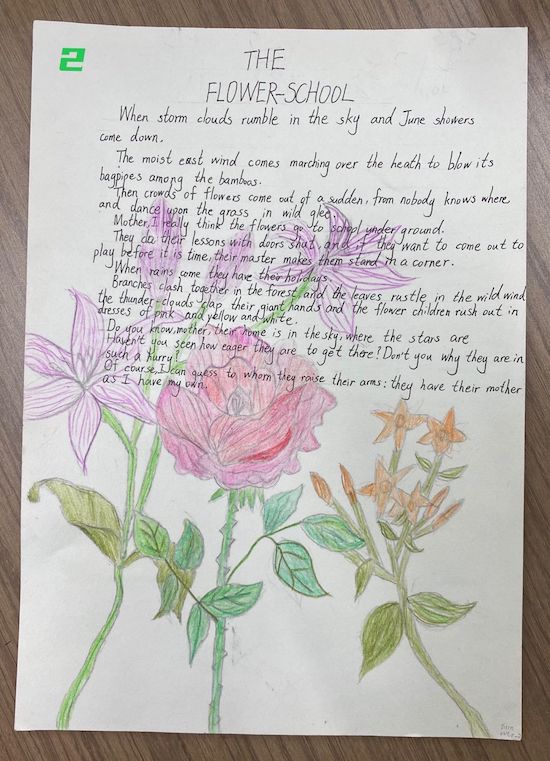 2
THE
FLOWER-SCHOOL
When storm clouds rumble in the sky and June showers
come down.
The moist east wind comes marching over the heath to blow its
bagpipes among the bamboos.
Then crowds of flowers come out of a sudden, from nobody knows where
and dance upon the grass in wild glee.
Mother, I really think the flowers go to school underground.
They do their lessons with doors shut, and if they want to come out to
play before it is time, their master makes them stand in a corner.
When rains come they have their holidays.
Branches clash together in the forest, and the leaves rustle in the wild wind
the thunder-clouds clap their giant hands and the flower children rush out in
dresses of pink and yellow and white.
Do you know, mother, their home is in the sky, where the stars are
Haven't you seen how eager they are to get there? Don't you why they are in
such a hurry?
Of course, I can guess to whom they raise their arms: they have their mother
as I have my own.